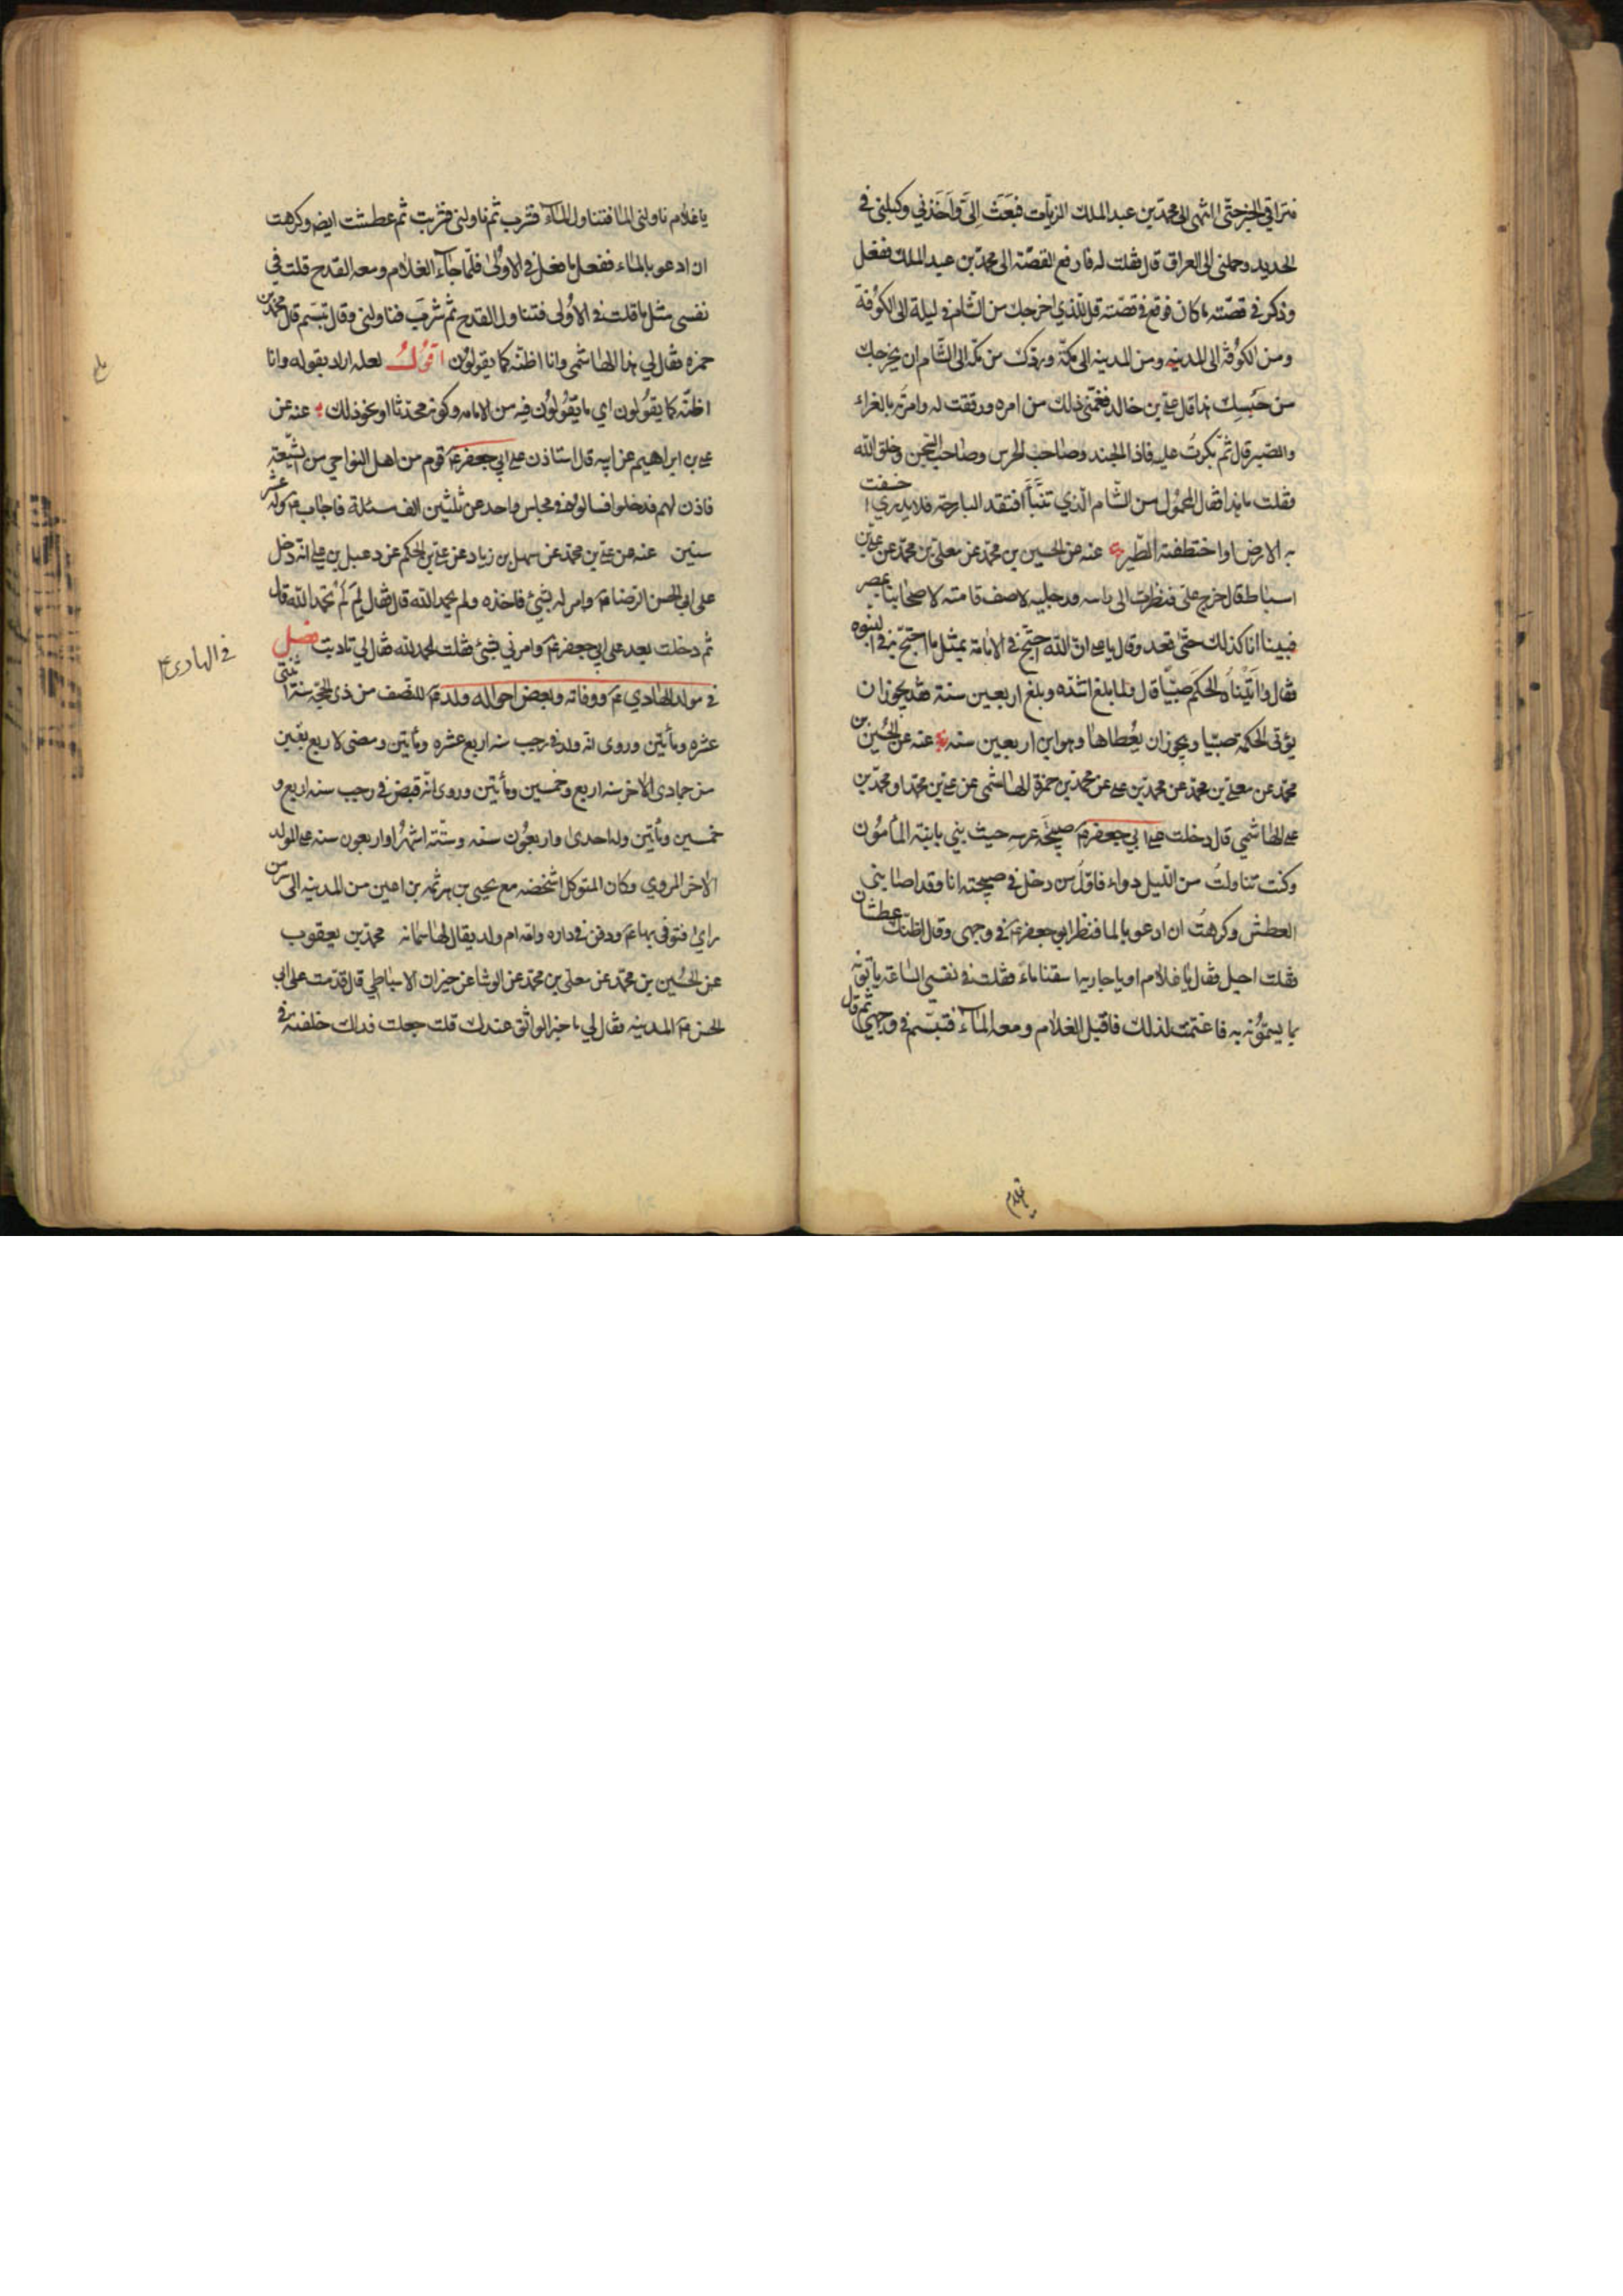 فتراقى الخبر حتى انتهى الى محمد بن عبد الملك الزيات فبعث الىّ وأخذني وكبلني في
الحديد وحملني الى العراق قال فقلت له فارفع القصّة الى محمد بن عبد الملك ففعل
وذكر في قصّته ما كان فوقع في قصّته قل للّذي اخرجك من الشام في ليلة الى الكوفة
ومن الكوفة الى المدينه ومن المدينه الى مكّة وردّك من مكّة الى الشام ان يخرجك
من حبسك هذا قال علي بن خالد فغمّني ذلك من امره ورققت له وامرته بالعزاء
والصّبر قال ثمّ بكرتُ عليه فاذا الجند وصاحب الحرس وصاحب السّجن وخلق الله
فقلت ما هذا فقال المحمول من الشّام الّذي تنبّأ افتقد البارحة فلا يدري ا خسفت
به الارض او اختطفته الطّير عنه عن الحسين بن محمّد عن معلى بن محمّد عن علي بن
اسباط قال خرج عليّ فنظرت الى راسه ورجليه لاصف قامته لاصحابنا بمصر
فبينا انا كذلك حتّى قعد وقال يا علي انّ الله احتجّ في الامامة بمثل ما احتجّ في النبوه
فقال وآتيناه الحكم صبيّا قال ولما بلغ اشدّه وبلغ اربعين سنة فقد يجوز ان
يؤتى الحكمة صبيّا ويجوز ان يُعطاها وهو ابن اربعين سنه عنه عن الحُسين بن
محمّد عن معلى بن محمّد عن محمّد بن علي عن محمّد بن حمزة الهاشمي عن علي بن محمّد او محمّد بن
علي الهاشمي قال دخلت على ابي جعفر صبيحة عرسه حيث بني بابنة المأمُون
وكنت تناولتُ من اللّيل دواء فاوّل من دخل في صبيحته انا وقد اصابني
العطش وكرهتُ ان ادعو بالما فنظر ابو جعفر في وجهي وقال اظنّك عطشان
فقلت اجل فقال يا غلام او يا جاريه اسقنا ماءً فقلت في نفسي السّاعة يأتونه
بما يسمّونه به فاغتممت لذلك فاقبل الغلام ومعه الماء فتبسّم في وجهي ثم قال
يا غلام
يا غلام ناولني الما فتناول الماء فشرب ثم ناولني فشربت ثم عطشت ايض وكرهت
ان ادعو بالماء ففعل ما فعل في الاولى فلمّا جاء الغلام ومعه القدح قلت في
نفسي مثل ما قلت في الاولى فتناول القدح ثم شرب فناولني وقال تبسّم قال محمد بن
حمزه فقال لي هذا الهاشمي وانا اظنّه كما يقولون اقول لعله اراد بقوله وانا
اظنّه كما يقولون اي ما يقولون فيه من الامامه وكونه محدّثا او نحو ذلك عنه عن
علي بن ابراهيم عن ابيه قال استاذن على ابي جعفر قوم من اهل النواحي من الشّيعة
فاذن لهم فدخلوا فسالوه في مجلس واحد عن ثلثين الف مسئلة فاجاب وله عشر
سنين عنه عن علي بن محمّد عن سهل بن زياد عن علي بن الحكم عن دعبل بن علي انه دخل
على ابي الحسن الرّضا وامر له بشيئ فاخذه ولم يحمد الله قال فقال لِمَ لَم تحمد الله قال
ثم دخلت بعد على ابي جعفر وامر لي بشيئ فقلت الحمد لله فقال لي تادبت فصل
في مولد الهادي ووفاته وبعض احواله ولد للنّصف من ذي الحجّه سنة اثنتي
في الهادي ع
عشره ومأتين وروى انه ولد في رجب سنه اربع عشره ومأتين ومضى لاربع بقين
من جمادى الاخر سنه اربع وخمسين ومأتين وروى انّه قبض في رجب سنه اربع و
خمسين ومأتين وله احدى واربعُون سنه وستّة اشهر او اربعون سنه على المولد
الاخر المروي وكان المتوكل اشخصه مع يحيى بن هرثمه بن اعين من المدينه الى سرّ من
راى فتوفى بها ودفن في داره وامّه ام ولد يقال لها سمانه محمّد بن يعقوب
عن الحُسين بن محمّد عن معلى بن محمّد عن الوشا عن خيران الاسباطي قال قدمت على ابي
الحسن المدينه فقال لي ما خبر الواثق عندك قلت جعلت فداك خلفته في